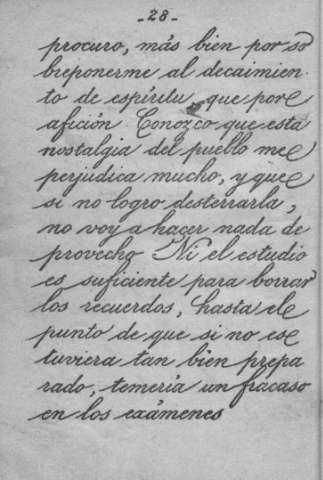 -28-
procuro, más bien por so
breponerme al decaimien
to de espíritu que por
afición. Conozco que esta
nostalgia del pueblo me
perjudica mucho, y que
si no logro desterrarla,
no voy a hacer nada de
provecho. Ni el estudio
es suficiente para borrar
los recuerdos, hasta el
punto de que si no es
tuviera tan bien prepa
rado, temería un fracaso
en los exámenes